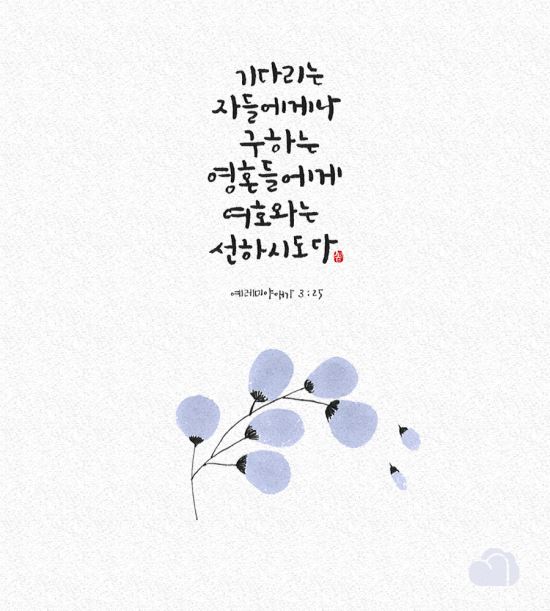 기다리는
자들에게나
구하는
영혼들에게
여호와는
선하시도다
예레미야애가 3:25